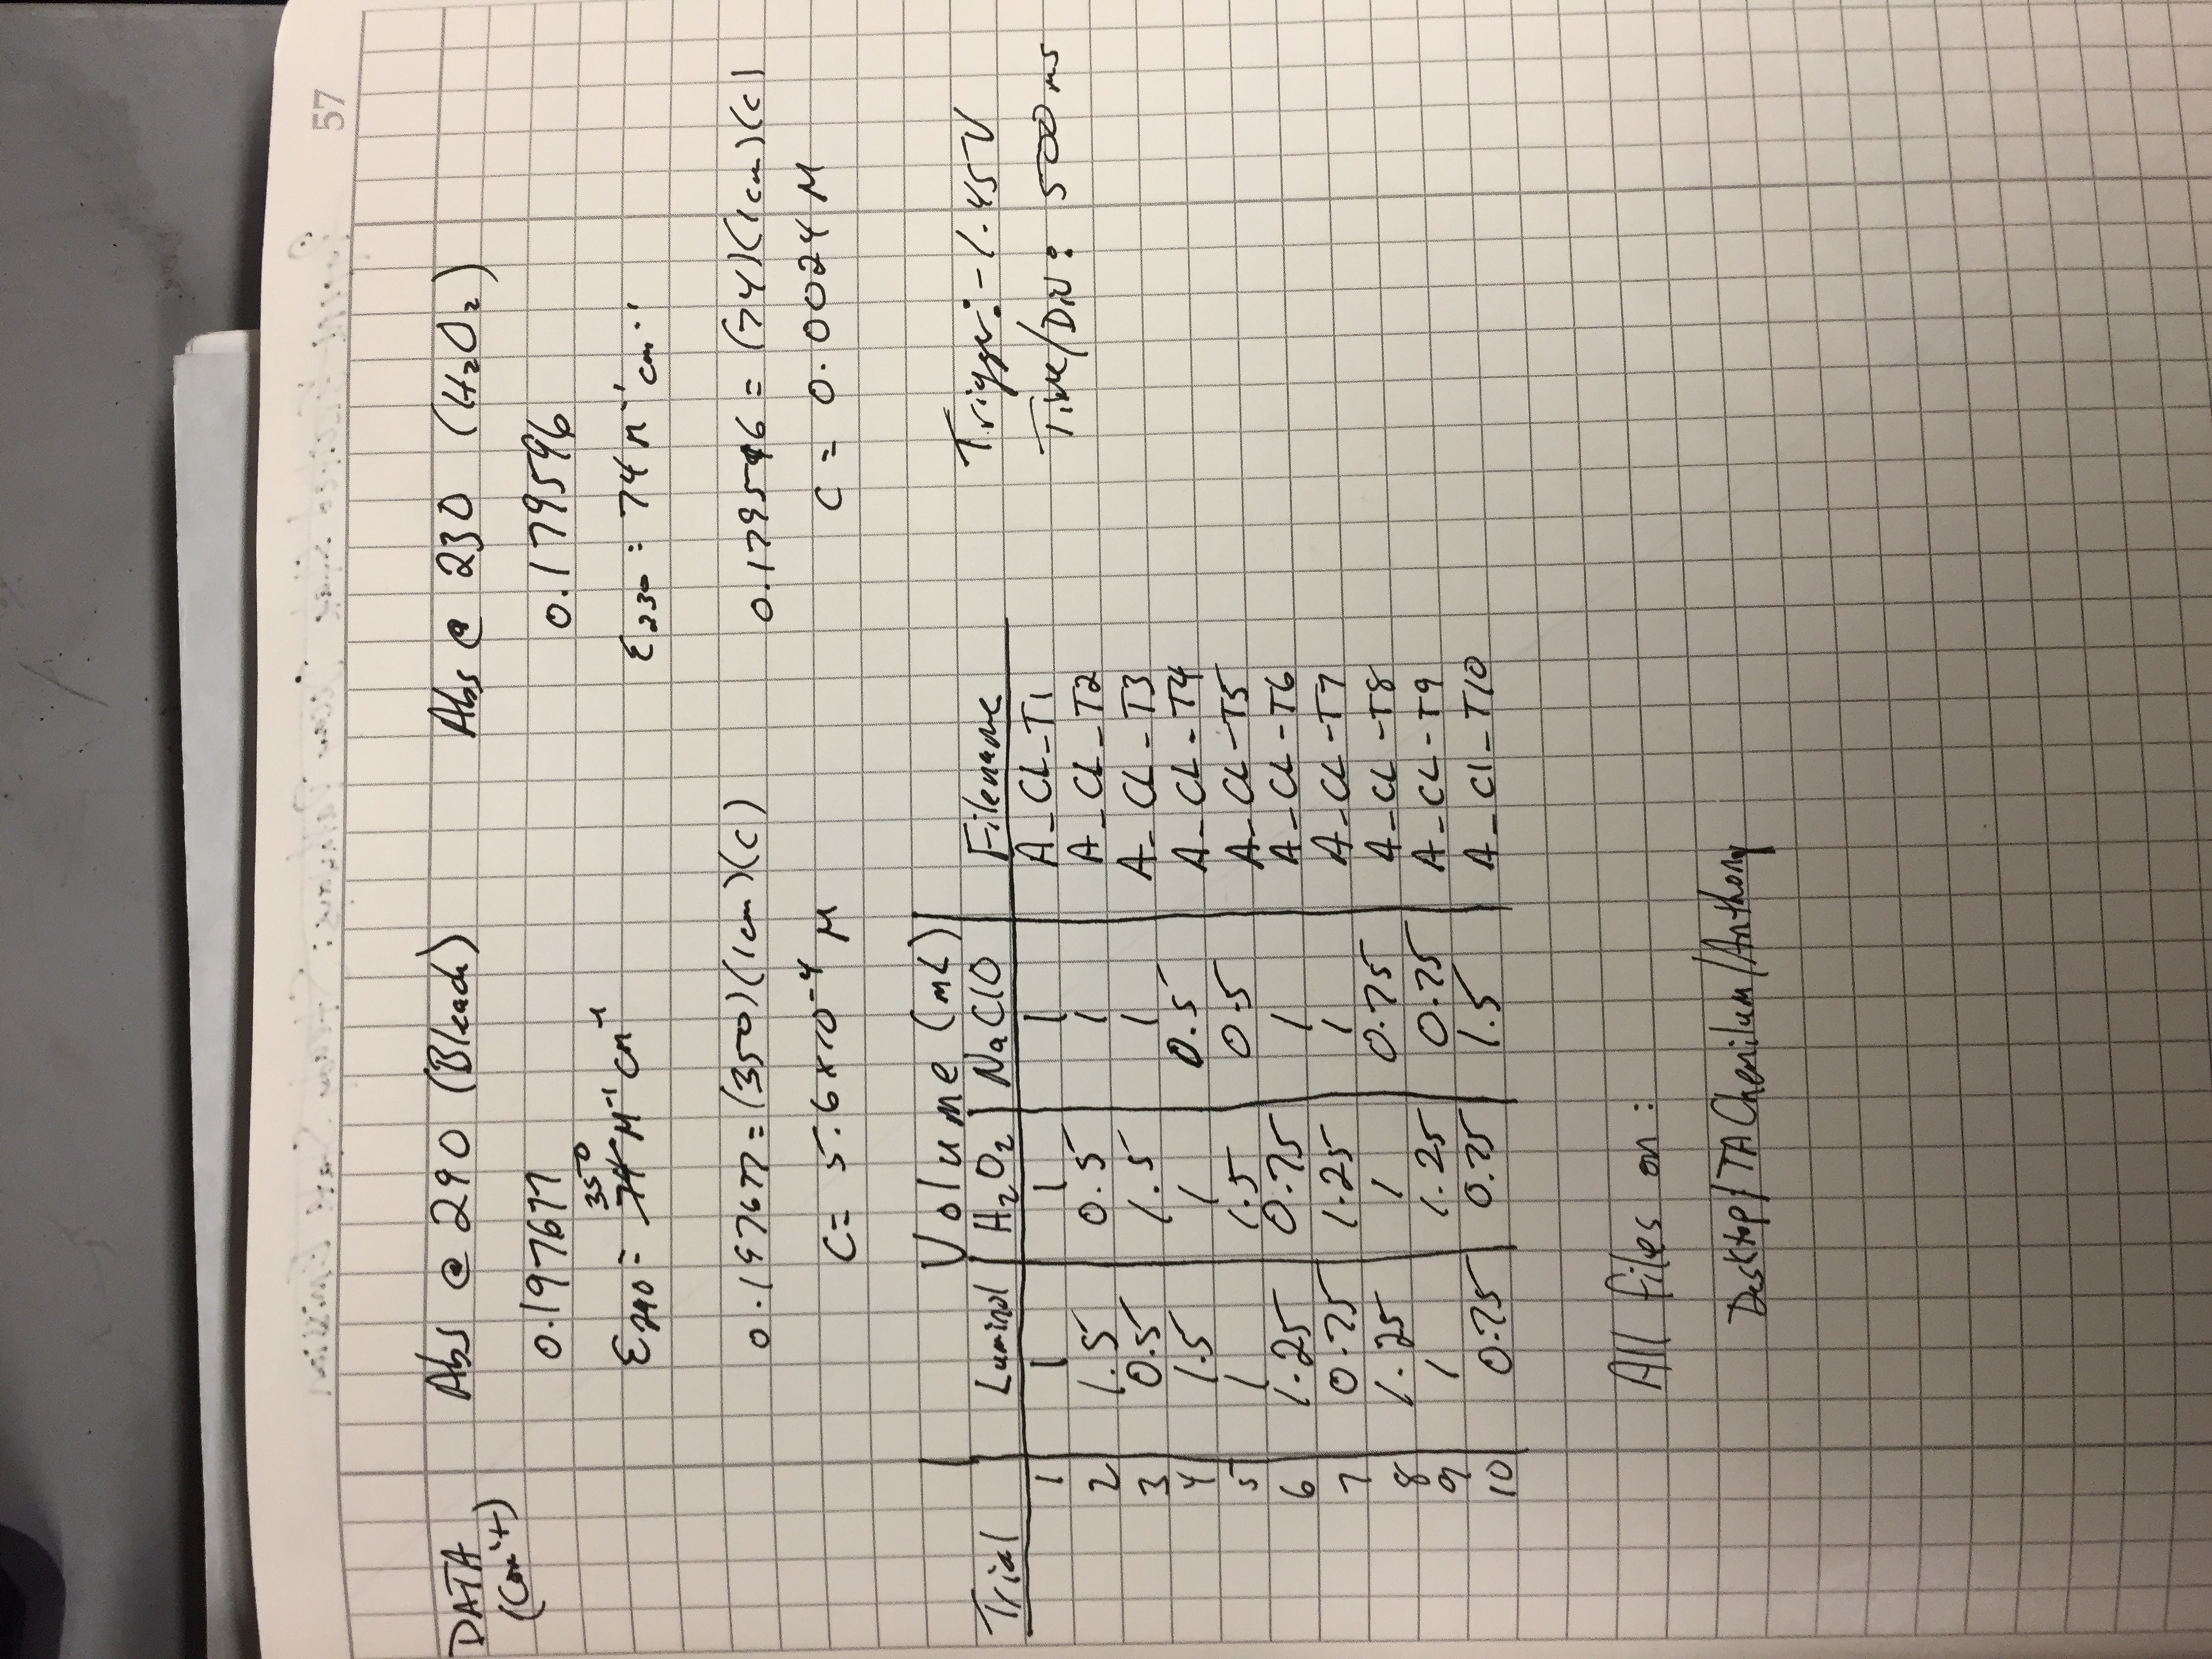 57
DATA
(Con't)
Abs @ 290 (Bleach)
0.197677
350
ε290 = 74 M-1 cm-1
0.197677 = (350)(1cm)(c)
C = 5.6x10-4 M
Abs @ 230 (H2O2)
0.179596
ε230 = 74 M-1 cm-1
0.179596 = (74)(1cm)(c)
C = 0.0024 M
Volume (mL)
Trial Luminol H2O2 NaClO Filename
1 1 1 1 A_CL_T1
2 1.5 0.5 1 A_CL_T2
3 0.5 1.5 1 A_CL_T3
4 1.5 1 0.5 A_CL_T4
5 1 1.5 0.5 A_CL_T5
6 1.25 0.75 1 A_CL_T6
7 0.75 1.25 1 A_CL_T7
8 1.25 1 0.75 A_CL_T8
9 1 1.25 0.75 A_CL_T9
10 0.75 0.75 1.5 A_Cl_T10
Trigger: -1.45V
Time/Div: 500 ms
All files on:
Desktop/TAChemilum/Anthony